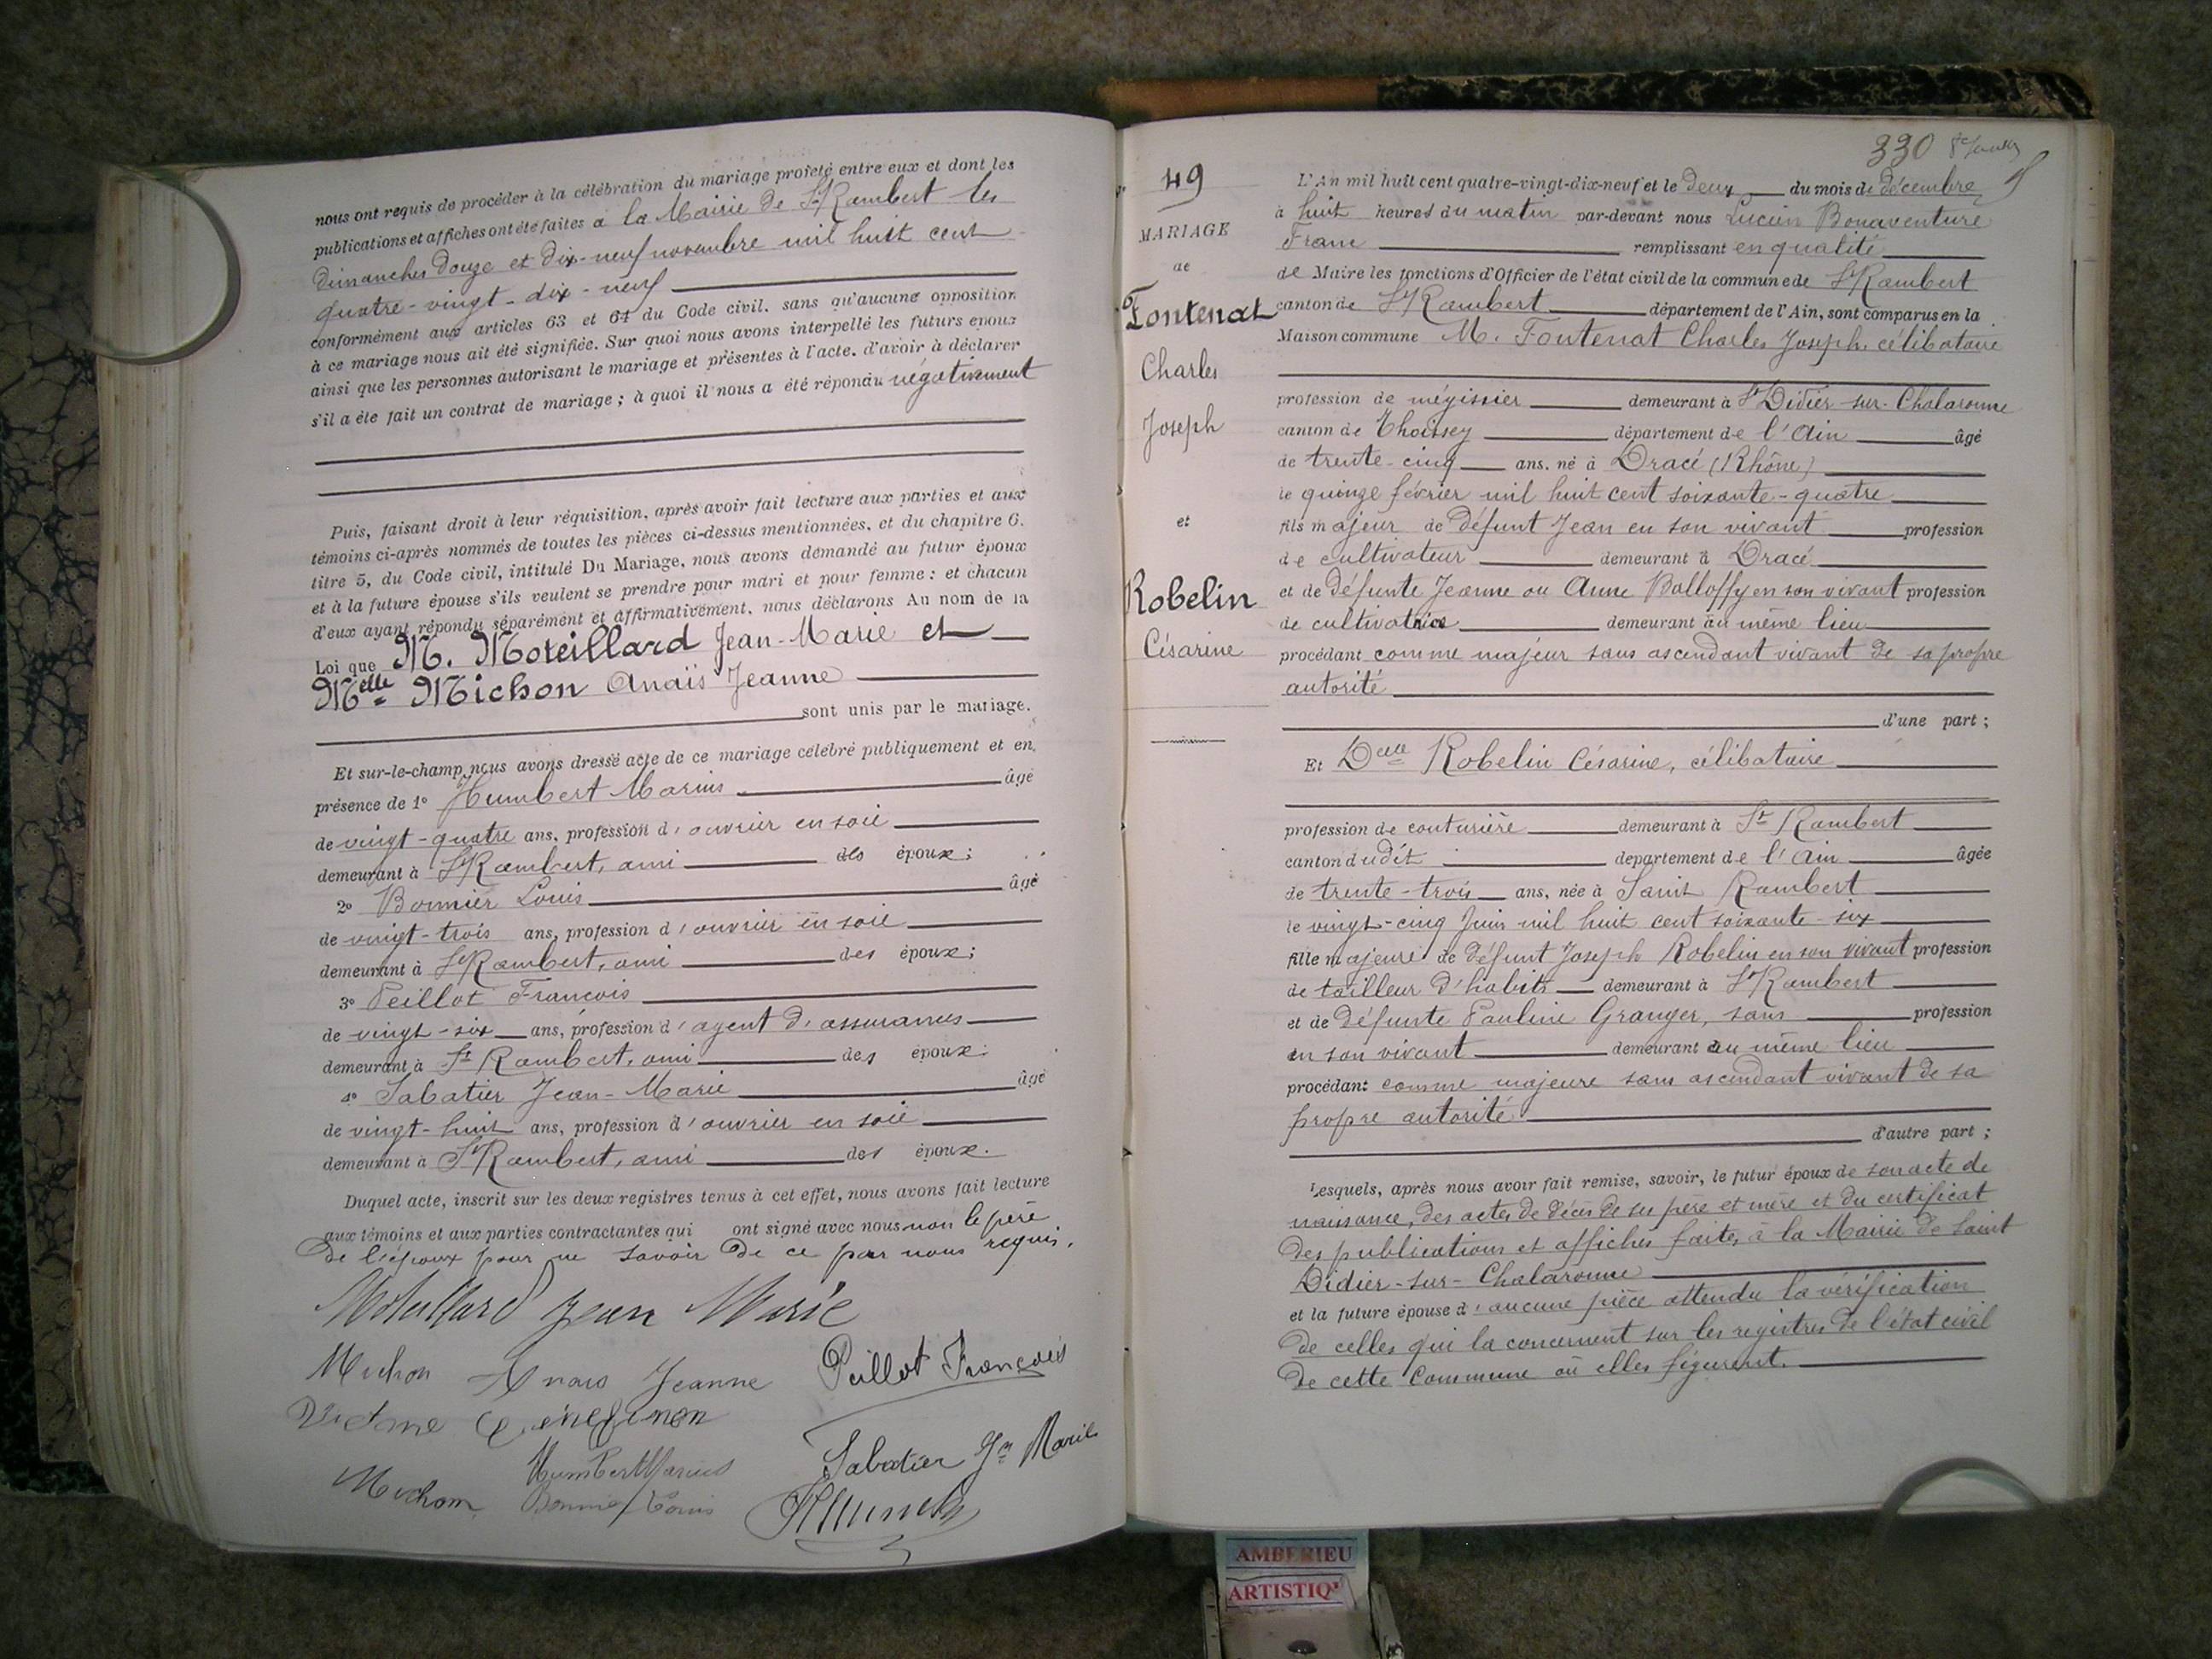 nous ont requis de procéder à la célébration du mariage projeté entre eux et dont les
publications et affiches ont été faites à la Mairie de St Rambert les
dimanches douze et dix-neuf novembre mil huit cent
quatre-vingt-dix-neuf
conformément aux articles 63 et 64 du Code civil, sans qu'aucune opposition
à ce mariage nous ait été signifiée. Sur quoi nous avons interpellé les futurs époux
ainsi que les personnes autorisant le mariage et présentes à l'acte, d'avoir à déclarer
s'il a été fait un contrat de mariage ; à quoi il nous a été répondu négativement
Puis, faisant droit à leur réquisition, après avoir fait lecture aux parties et aux
témoins ci-après nommés de toutes les pièces ci-dessus mentionnées, et du chapitre 6,
titre 5, du Code civil, intitulé Du Mariage, nous avons demandé au futur époux
et à la future épouse s'ils veulent se prendre pour mari et pour femme : et chacun
d'eux ayant répondu séparément et affirmativement, nous déclarons Au nom de la
Loi que M. Moteillard Jean-Marie et
Melle Michon Anaïs Jeanne
sont unis par le mariage.
Et sur-le-champ nous avons dressé acte de ce mariage célébré publiquement et en
présence de 1° Humbert Marius âgé
de vingt-quatre ans, profession d'ouvrier en soie
demeurant à St Rambert, ami des époux ;
2° Bonnier Louis âgé
de vingt-trois ans, profession d'ouvrier en soie
demeurant à St Rambert, ami des époux ;
3° Peillot François
de vingt-six ans, profession d'agent d'assurances
demeurant à St Rambert, ami des époux ;
4° Sabatier Jean-Marie âgé
de vingt-huit ans, profession d'ouvrier en soie
demeurant à St Rambert, ami des époux.
Duquel acte, inscrit sur les deux registres tenus à cet effet, nous avons fait lecture
aux témoins et aux parties contractantes qui ont signé avec nous non le père
de l'époux pour ne savoir de ce par nous requis.
Moteillard Jean Marie
Michon Anais Jeanne Peillot François
Humbert Marius Sabatier Jn Marie
Michon Bonnier Louis
330
49
MARIAGE
de
Fontenat
Charles
Joseph
et
Robelin
Césarine
L'An mil huit cent quatre-vingt-dix-neuf et le deux du mois de décembre
à huit heures du matin par-devant nous Lucien Bonaventure
Franc remplissant en qualité
de Maire les fonctions d'Officier de l'état civil de la commune de St Rambert
canton de St Rambert département de l'Ain, sont comparus en la
Maison commune M. Fontenat Charles Joseph, célibataire
profession de mégissier demeurant à St Didier-sur-Chalaronne
canton de Thoissey département de l'Ain âgé
de trente-cinq ans, né à Dracé (Rhône)
le quinze février mil huit cent soixante-quatre
fils majeur de défunt Jean en son vivant profession
de cultivateur demeurant à Dracé
et de défunte Jeanne ou Anne Balloffy en son vivant profession
de cultivatrice demeurant au même lieu
procédant comme majeur sans ascendant vivant de sa propre
autorité
d'une part ;
Et Delle Robelin Césarine, célibataire
profession de couturière demeurant à St Rambert
canton dudit département de l'Ain âgée
de trente-trois ans, née à Saint Rambert
le vingt-cinq Juin mil huit cent soixante-six
fille majeure de défunt Joseph Robelin en son vivant profession
de tailleur d'habits demeurant à St Rambert
et de défunte Pauline Granger, sans profession
en son vivant demeurant au même lieu
procédant comme majeure sans ascendant vivant de sa
propre autorité
d'autre part ;
Lesquels, après nous avoir fait remise, savoir, le futur époux de son acte de
naissance, des actes de décès de ses père et mère et du certificat
des publications et affiches faites à la Mairie de Saint
Didier-sur-Chalaronne
et la future épouse d'aucune pièce attendu la vérification
de celles qui la concernent sur les registres de l'état civil
de cette Commune où elles figurent.
AMBERIEU
ARTISTIQ'